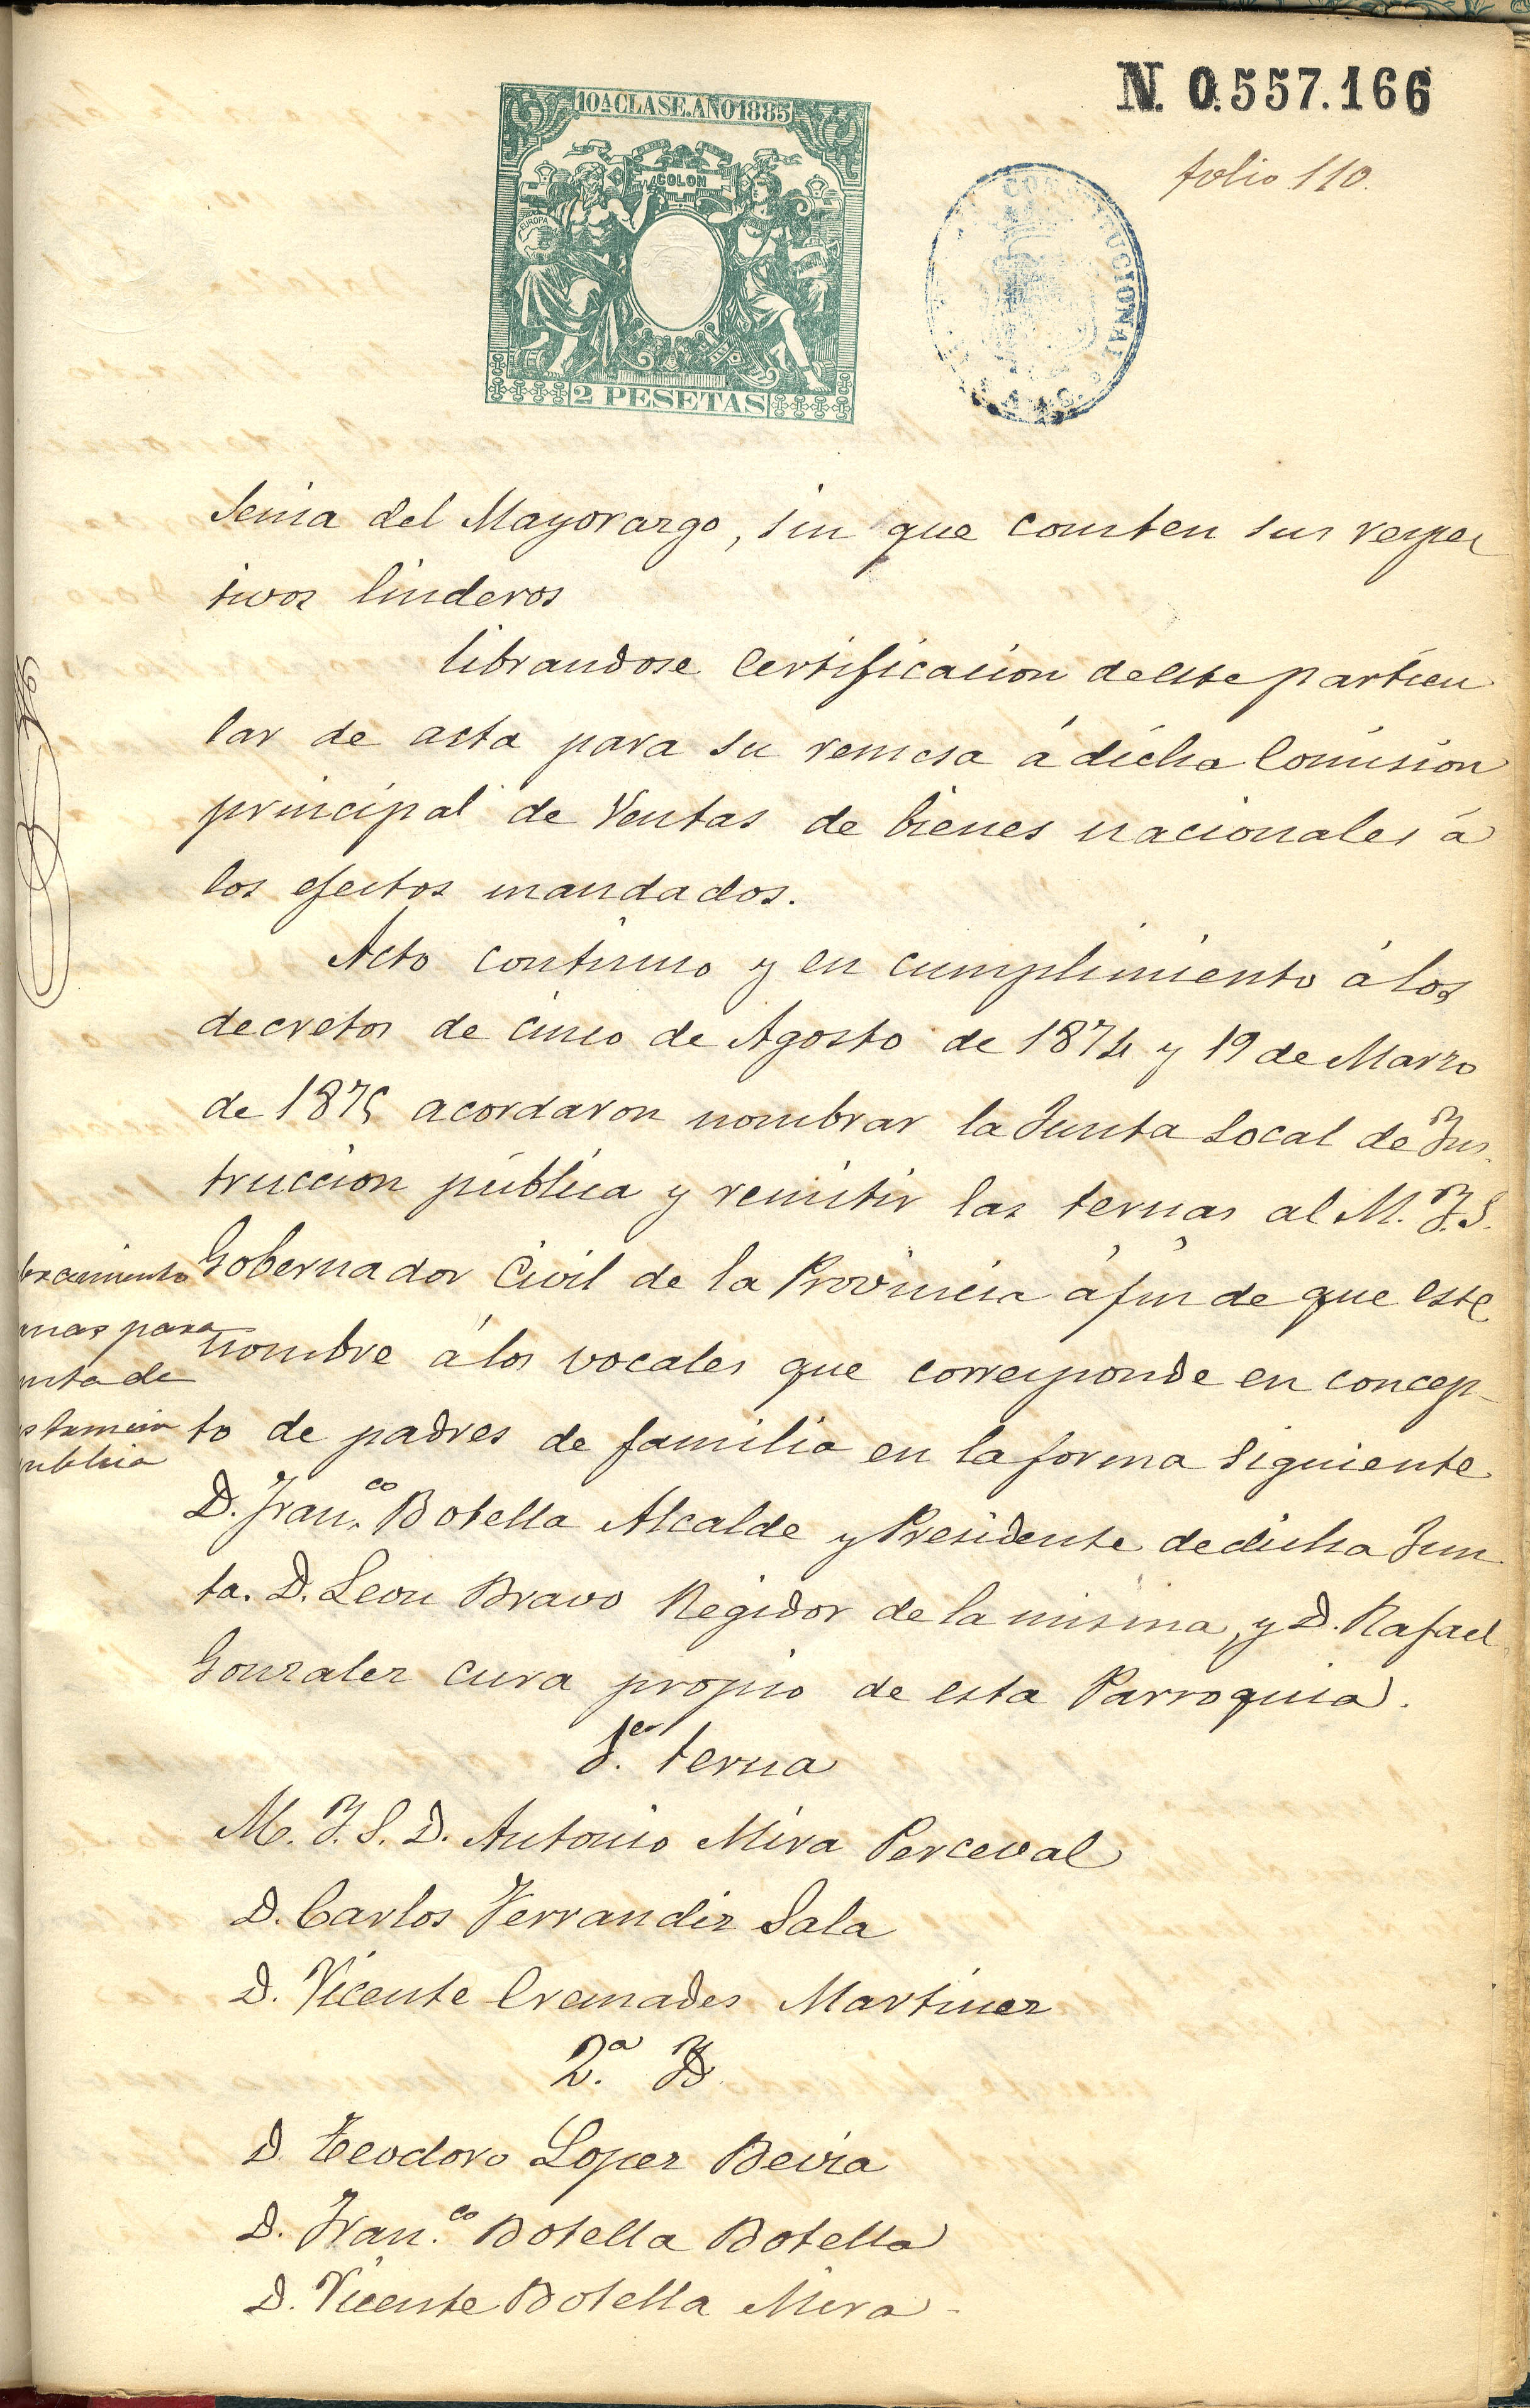 N. 0.557.166
folio 110.
10A CLASE. AÑO 1885
COLON
EUROPA
2 PESETAS
CONSTITUCIONAL
Senia del Mayorazgo, sin que consten sus respec
tivos linderos
librandose Certificacion de este particu
lar de acta para su remesa á dicha Comision
principal de Ventas de bienes nacionales á
los efectos mandados.
Acto continuo y en cumplimiento á los
decretos de cinco de Agosto de 1874 y 19 de Marzo
de 1875 acordaron nombrar la Junta Local de Ins-
truccion pública y remitir las ternas al M. I. S.
Gobernador Civil de la Provincia á fin de que este
nombre á los vocales que corresponde en concep-
to de padres de familia en la forma siguiente
D. Fran.co Botella Alcalde y Presidente de dicha Jun
ta. D. Leon Bravo Regidor de la misma, y D. Rafael
Gonzalez cura propio de esta Parroquia.
1.er terna
M. I. S. D. Antonio Mira Perceval
D. Carlos Ferrandiz Sala
D. Vicente Cremades Martinez
2.a
D. Teodoro Lopez Beviá
D. Fran.co Botella Botella
D. Vicente Botella Mira-
nas para
nta de
ublica